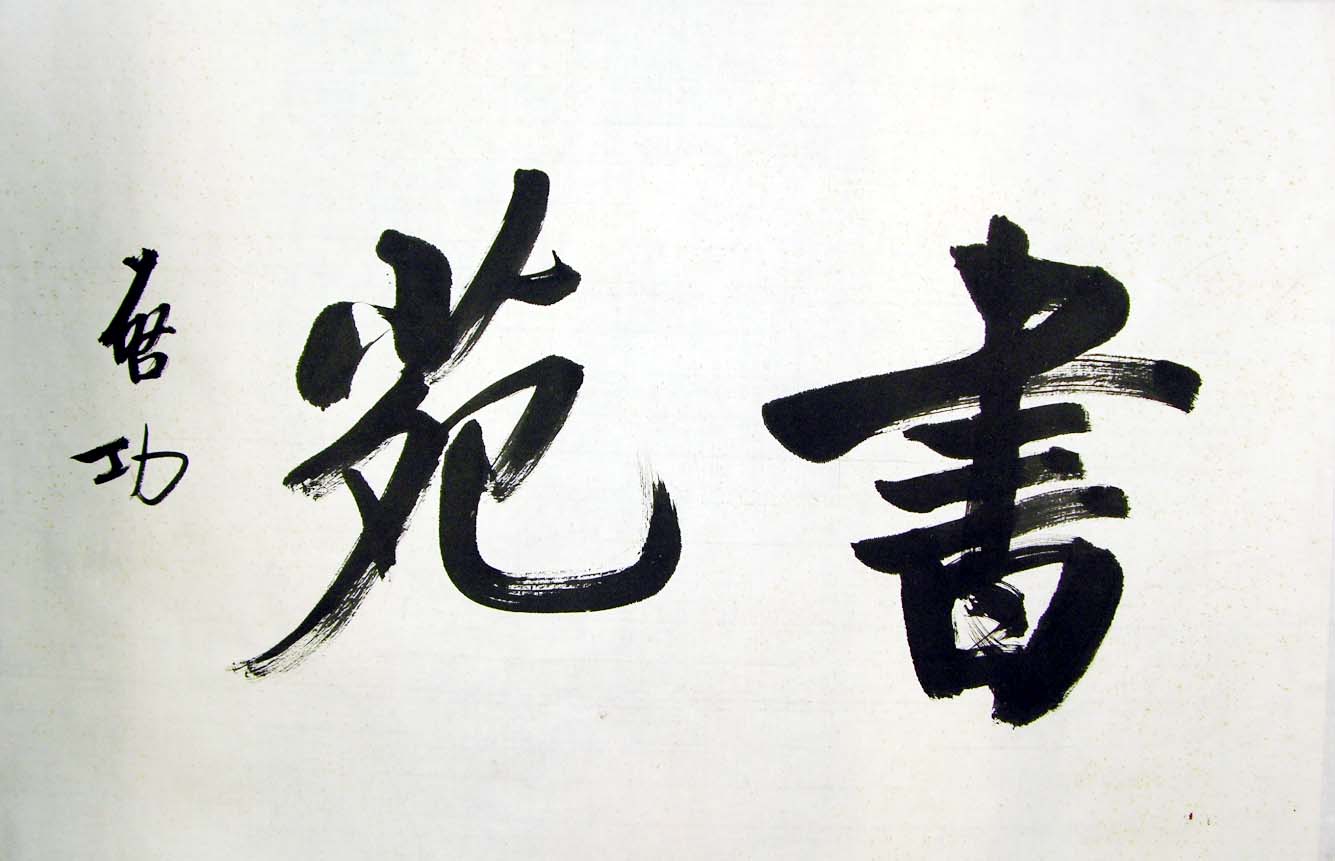 書苑
啓功